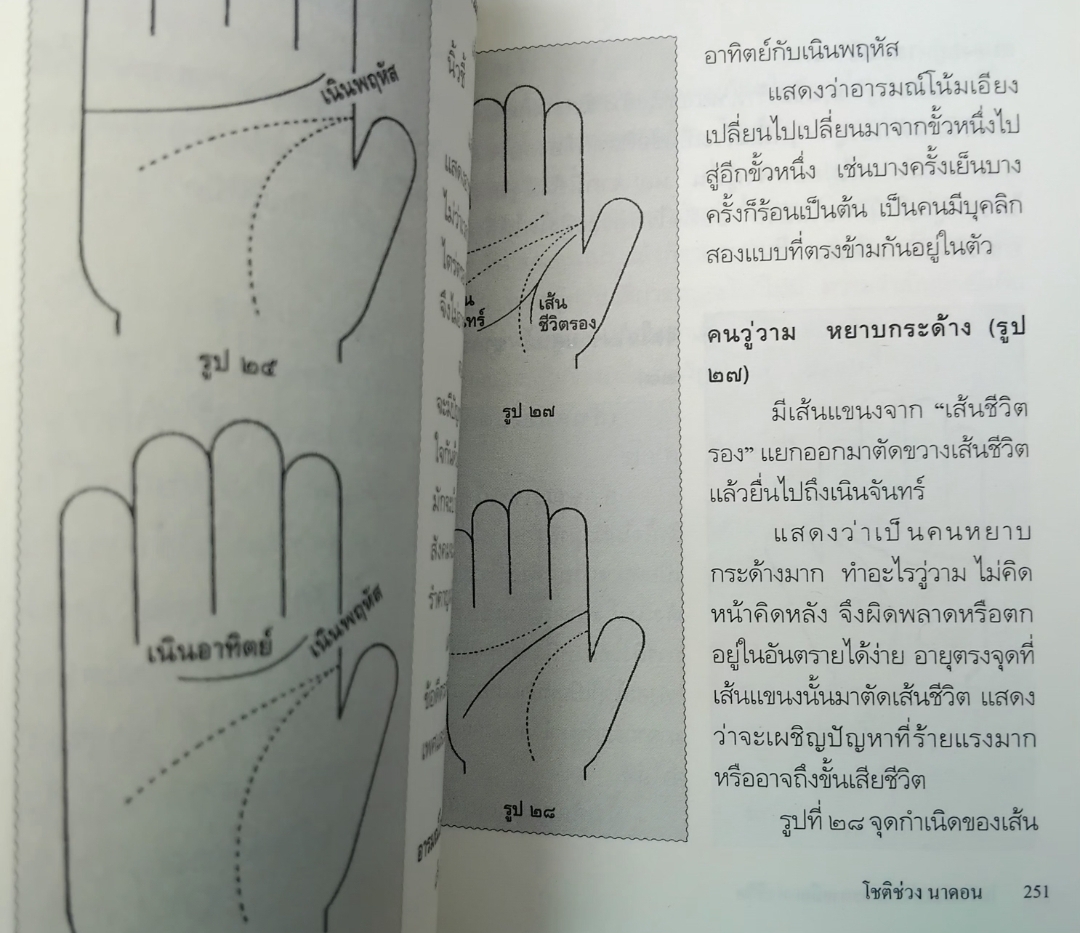 เนินพฤหัส
รูป ๒๕
เนินอาทิตย์
เนินพฤหัส
นิ้วชี้
เส้น
ชีวิตรอง
รูป ๒๗
รูป ๒๘
อาทิตย์กับเนินพฤหัส
แสดงว่าอารมณ์โน้มเอียง
เปลี่ยนไปเปลี่ยนมาจากขั้วหนึ่งไป
สู่อีกขั้วหนึ่ง เช่นบางครั้งเย็นบาง
ครั้งก็ร้อนเป็นต้น เป็นคนมีบุคลิก
สองแบบที่ตรงข้ามกันอยู่ในตัว
คนวู่วาม หยาบกระด้าง (รูป
๒๗)
มีเส้นแขนงจาก “เส้นชีวิต
รอง” แยกออกมาตัดขวางเส้นชีวิต
แล้วยื่นไปถึงเนินจันทร์
แสดงว่าเป็นคนหยาบ
กระด้างมาก ทำอะไรวู่วาม ไม่คิด
หน้าคิดหลัง จึงผิดพลาดหรือตก
อยู่ในอันตรายได้ง่าย อายุตรงจุดที่
เส้นแขนงนั้นมาตัดเส้นชีวิต แสดง
ว่าจะเผชิญปัญหาที่ร้ายแรงมาก
หรืออาจถึงขั้นเสียชีวิต
รูปที่ ๒๘ จุดกำเนิดของเส้น
โชติช่วง นาดอน 251